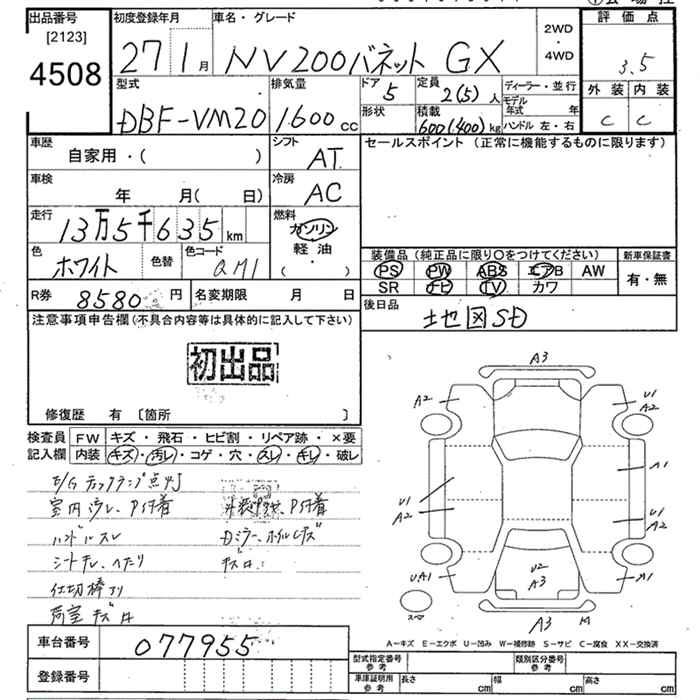 出品番号
[2123]
4508
初度登録年月
27 1月
車名・グレード
NV200バネット GX
2WD
・
4WD
評価点
3.5
外装 内装
C C
型式
DBF-VM20
排気量
1600cc
ドア
5
形状
定員
2(5)人
積載
600(400)kg
ディーラー・並行
モデル年式 年
ハンドル 左・右
車歴
自家用・( )
シフト
AT
セールスポイント (正常に機能するものに限ります)
車検
年 月( 日)
冷房
AC
走行
13万5千635km
燃料
ガソリン
軽油
( ・ )
色
ホワイト
色替
色コード
QM1
装備品 (純正品に限り○をつけてください)
PS PW ABS エアB AW
SR ナビ TV カワ
新車保証書
有・無
R券 8580円
名変期限 月 日
後日品
地図SD
注意事項申告欄 (不具合内容等は具体的に記入して下さい)
初出品
修復歴 有 〔箇所 〕
検査員
記入欄
FW キズ・飛石・ヒビ割・リペア跡・×要
内装 キズ・汚レ・コゲ・穴・スレ・キレ・破レ
E/Gチェックランプ点灯
室内汚レ、P付着
ハンドルスレ
Dミラー、ホイルキズ
シートキレ、ヘタリ
仕切棒アリ
荷室キズ
A3
A2
U1
A2
U1
A2
A1
U1
A2
UA1
U2
A3
A1
A3
M
A−キズ E−エクボ U−凹み W−補修跡 S−サビ C−腐食 XX−交換済
車台番号 077955
登録番号
型式指定番号
参考
類別区分番号
参考
車庫証明用
参考
長さ cm 幅 cm 高さ cm